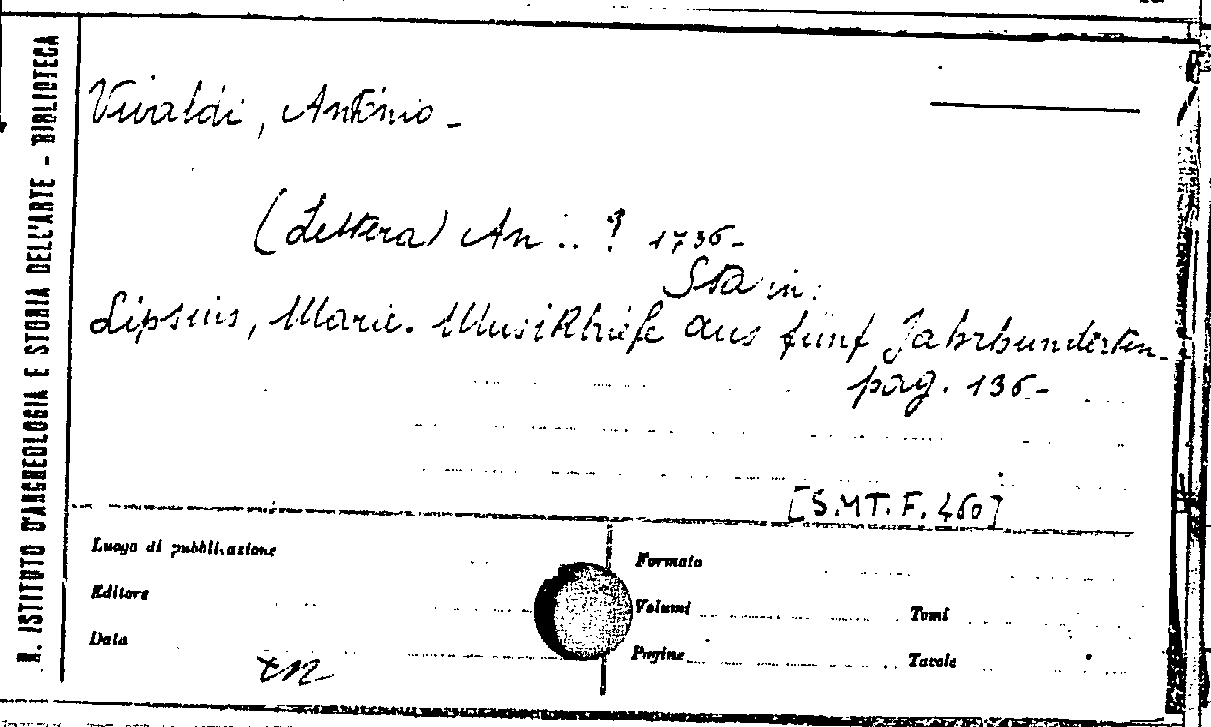 R. ISTITUTO D'ARCHEOLOGIA E STORIA DELL'ARTE - BIBLIOTECA
Vivaldi, Antonio -
(Lettera) An... ? 1736-
Sta in:
Lipsius, Marie. Musikbriefe aus fünf Jahrhunderten-
pag. 136-
[S.MT.F. 460]
Luogo di pubblicazione
Formato
Editore
Volumi
Tomi
Data
Pagine
Tavole